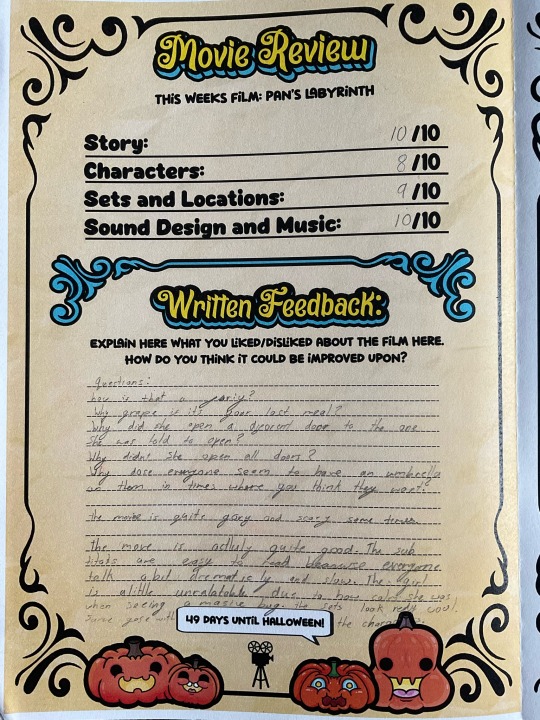 Movie Review
THIS WEEKS FILM: PAN'S LABYRINTH
Story: 10/10
Characters: 8/10
Sets and Locations: 9/10
Sound Design and Music: 10/10
Written Feedback:
EXPLAIN HERE WHAT YOU LIKED/DISLIKED ABOUT THE FILM HERE.
HOW DO YOU THINK IT COULD BE IMPROVED UPON?
Questions:
how is that a
Why grape if it's your last meal?
Why did she open a door to the one
She was told to open?
Why didnt she open all doors?
Why dose everyone seem to have an umbrella
on them in times where you think they wont?
The movie is quite gory and scary some times
The move is actully quite good. The sub
titals are easy to read becausse everyone
talk abit dramaticly and slow. The girl
is alittle unrealatable due to how calm she was
when seeing a masive bug. The sets look realy cool.
Same gose with the
49 DAYS UNTIL HALLOWEEN!